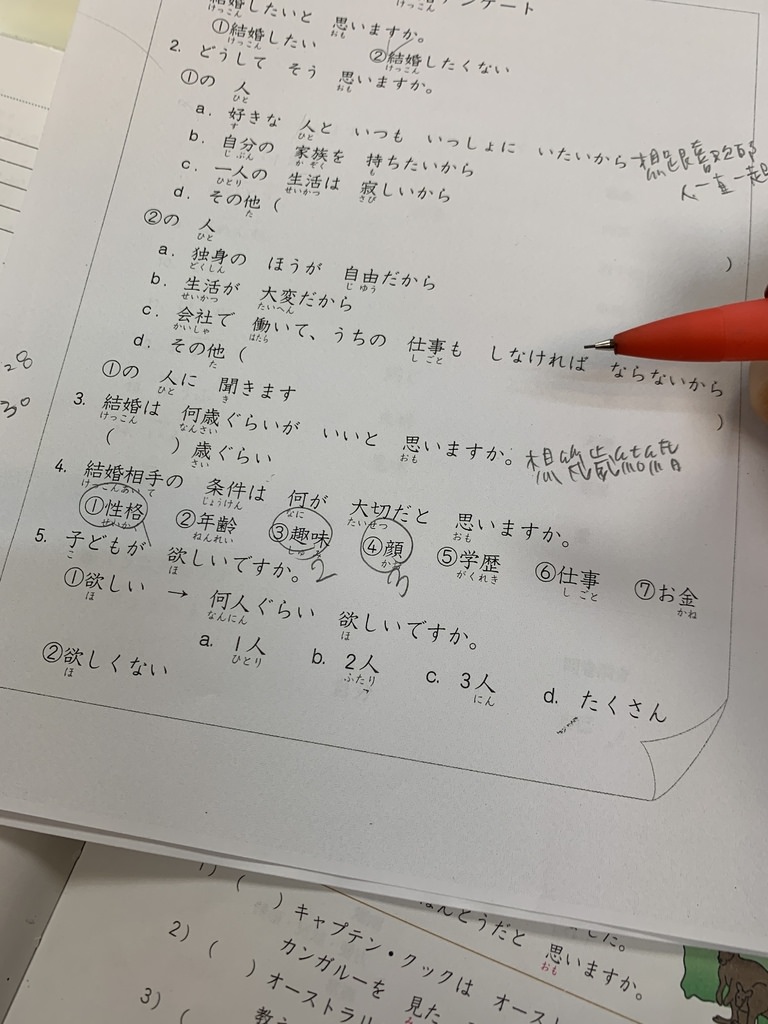 アンケート
結婚したいと 思いますか。
①結婚したい ②結婚したくない
2. どうして そう 思いますか。
①の 人
a. 好きな 人と いつも いっしょに いたいから 想跟喜欢的
人一直一起
b. 自分の 家族を 持ちたいから
c. 一人の 生活は 寂しいから
d. その他 ( )
②の 人
a. 独身の ほうが 自由だから
b. 生活が 大変だから
c. 会社で 働いて、うちの 仕事も しなければ ならないから
d. その他 ( )
①の 人に 聞きます
3. 結婚は 何歳ぐらいが いいと 思いますか。
( ) 歳ぐらい
28
30
4. 結婚相手の 条件は 何が 大切だと 思いますか。
①性格 ②年齢 ③趣味 ④顔 ⑤学歴 ⑥仕事 ⑦お金
2 3
5. 子どもが 欲しいですか。
①欲しい → 何人ぐらい 欲しいですか。
a. 1人 b. 2人 c. 3人 d. たくさん
②欲しくない
1) (
ほんとうだと 思いますか。
2) ( ) キャプテン・クックは オース
カンガルーを 見た
3) ( ) オーストラリ